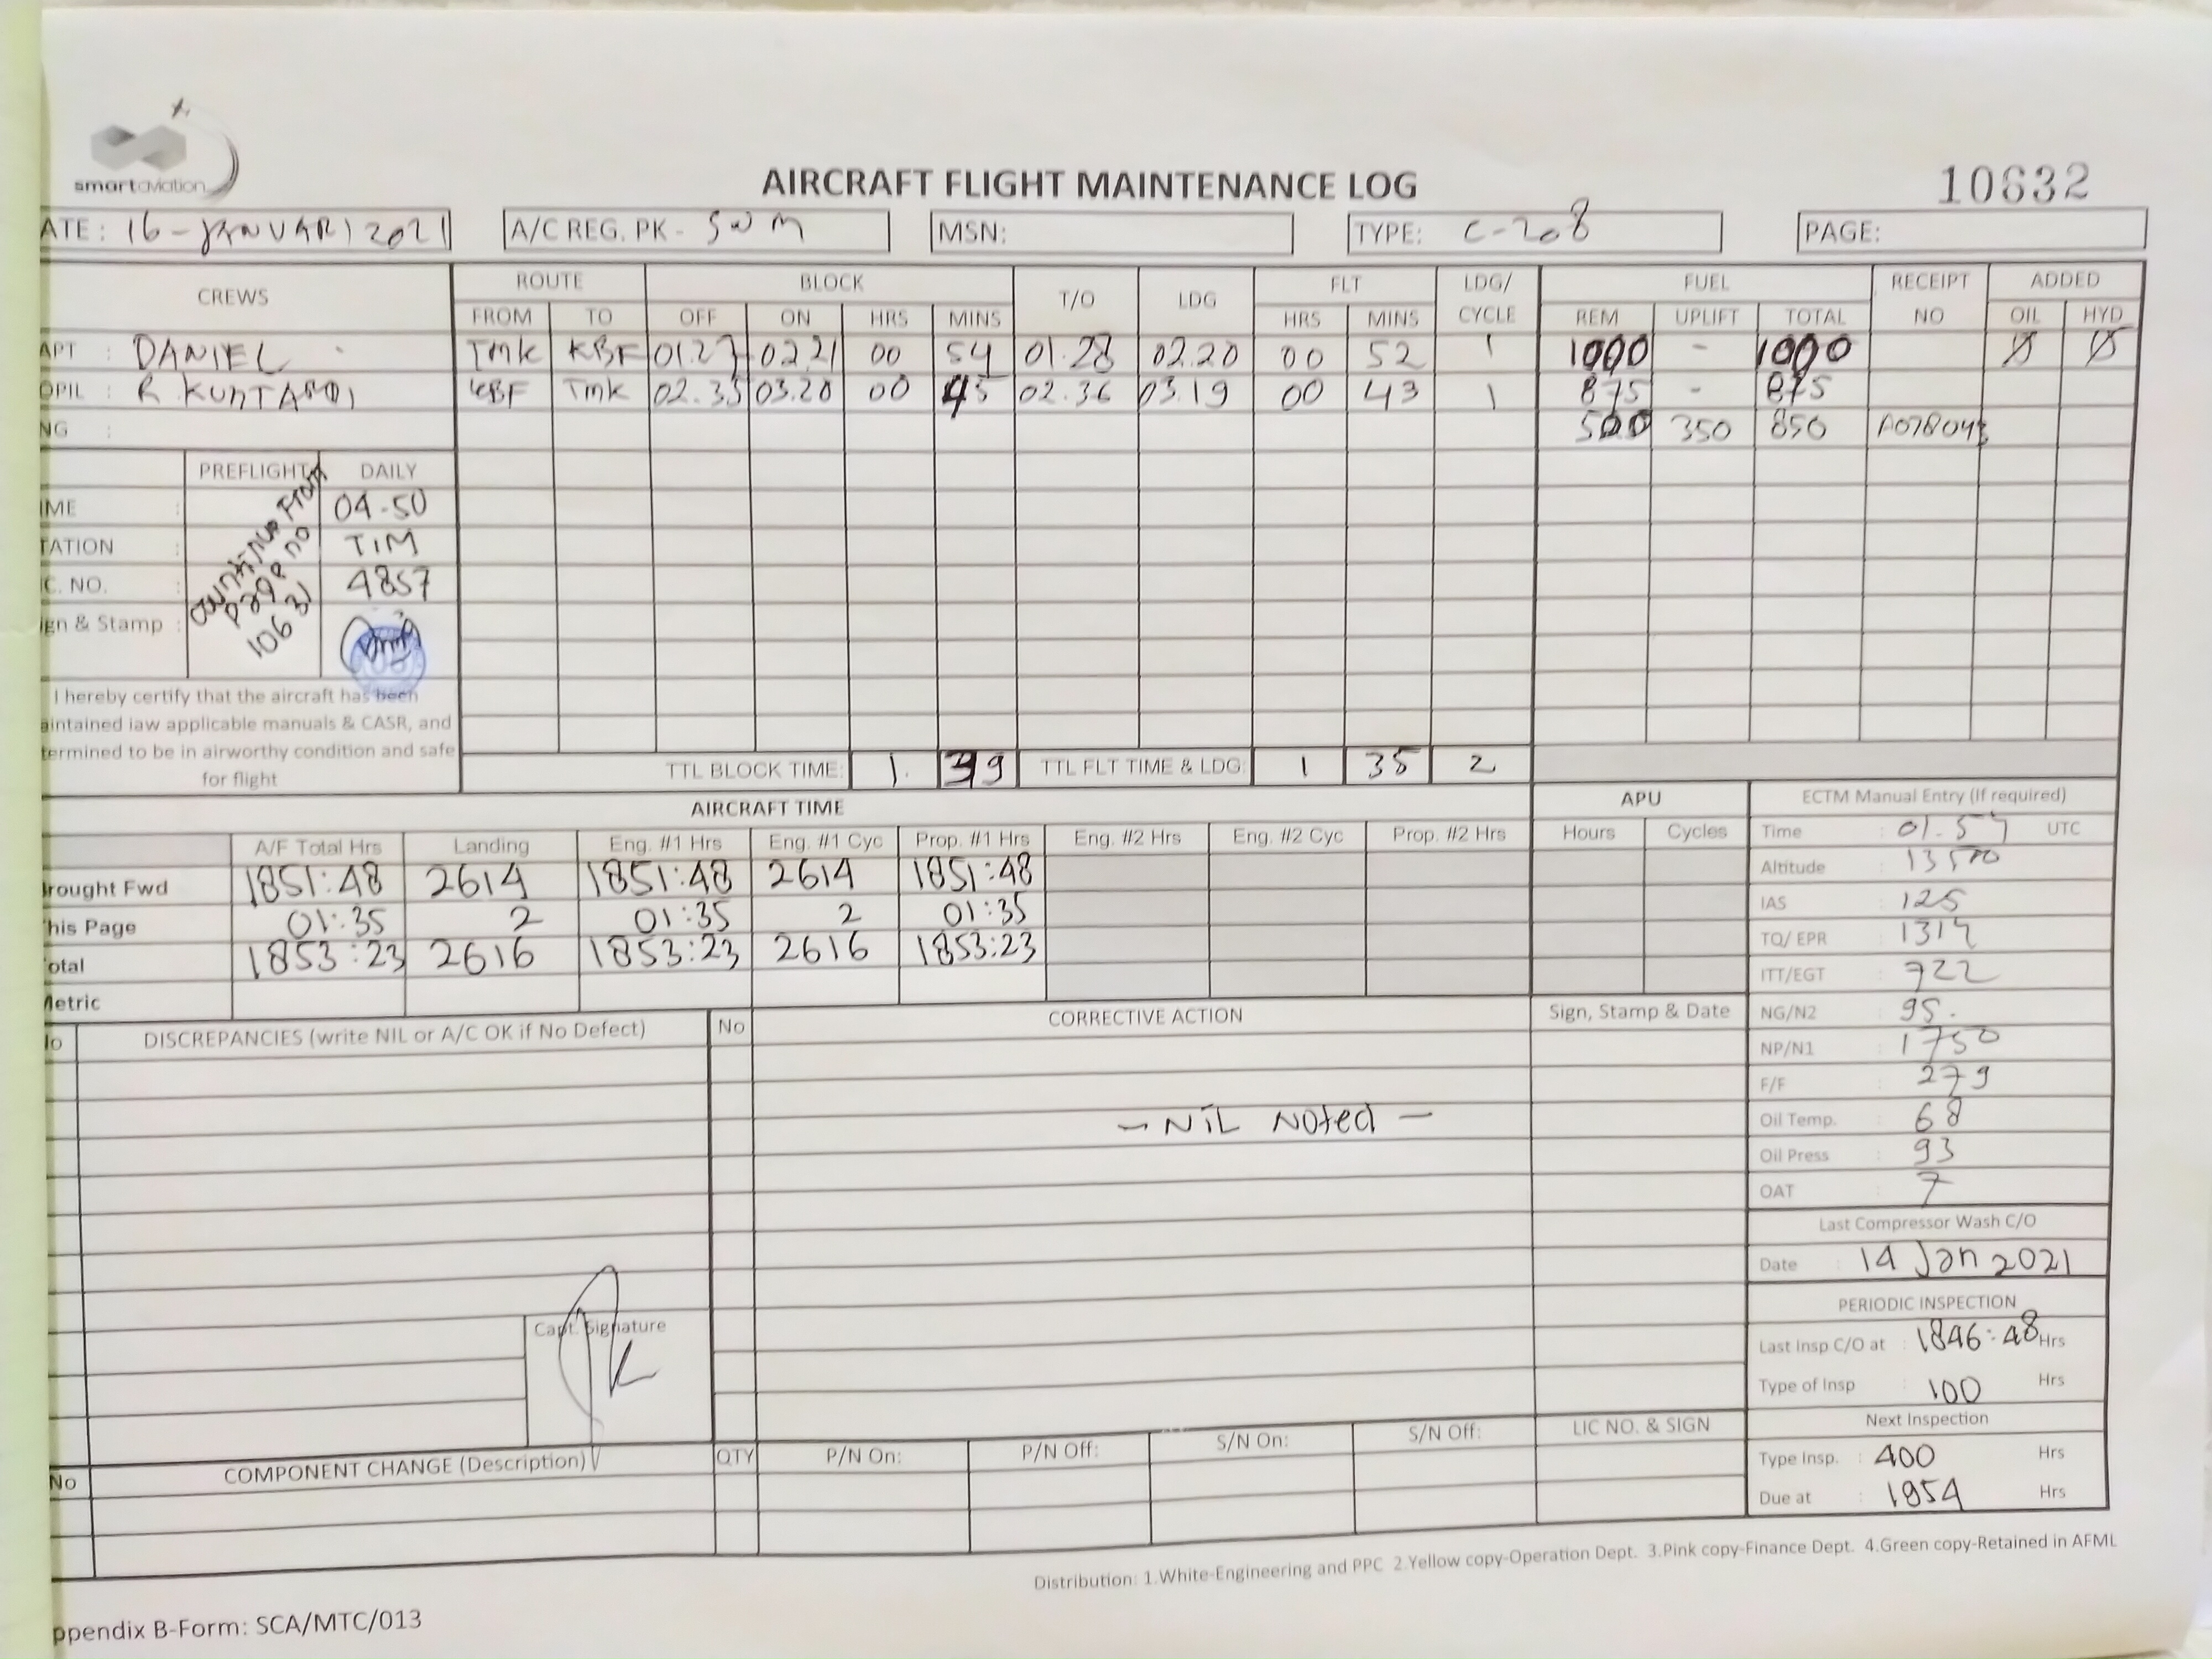 smartaviation
AIRCRAFT FLIGHT MAINTENANCE LOG
10632
ATE: 16-JANUARI 2021 A/C REG. PK- SNM MSN: TYPE: C-208 PAGE:
CREWS ROUTE BLOCK T/O LDG FLT LDG/ CYCLE FUEL RECEIPT NO ADDED
FROM TO OFF ON HRS MINS HRS MINS REM UPLIFT TOTAL OIL HYD
APT : DANIEL TMK KBF 01.27 02.21 00 54 01.28 02.20 00 52 1 1000 - 1000 Ø Ø
OPIL : R. KUNTARDI KBF TMK 02.35 03.20 00 45 02.36 03.19 00 43 1 875 - 875
NG : 500 350 850
PREFLIGHT DAILY
IME : 04-50
TATION : TIM
C. NO. : 4857
ign & Stamp :
page no
10631
I hereby certify that the aircraft has been
aintained iaw applicable manuals & CASR, and
termined to be in airworthy condition and safe
for flight
TTL BLOCK TIME: 1. 39 TTL FLT TIME & LDG: 1 35 2
AIRCRAFT TIME APU ECTM Manual Entry (If required)
A/F Total Hrs Landing Eng. #1 Hrs Eng. #1 Cyc Prop. #1 Hrs Eng. #2 Hrs Eng. #2 Cyc Prop. #2 Hrs Hours Cycles
rought Fwd 1851:48 2614 1851:48 2614 1851:48
his Page 01:35 2 01:35 2 01:35
otal 1853:23 2616 1853:23 2616 1853:23
Metric
Time : UTC
Altitude : 13500
IAS : 125
TQ/ EPR : 1314
ITT/EGT : 722
NG/N2 : 95.
NP/N1 : 1750
F/F : 279
Oil Temp. : 68
Oil Press : 93
OAT : 7
Last Compressor Wash C/O
Date : 14 Jan 2021
PERIODIC INSPECTION
Last Insp C/O at : 1846:48 Hrs
Type of Insp : 100 Hrs
Next Inspection
Type Insp. : 400 Hrs
Due at : 1954 Hrs
lo DISCREPANCIES (write NIL or A/C OK if No Defect) No CORRECTIVE ACTION Sign, Stamp & Date
- NIL Noted -
Capt. Signature
No COMPONENT CHANGE (Description) QTY P/N On: P/N Off: S/N On: S/N Off: LIC NO. & SIGN
Distribution: 1.White-Engineering and PPC 2.Yellow copy-Operation Dept. 3.Pink copy-Finance Dept. 4.Green copy-Retained in AFML
ppendix B-Form: SCA/MTC/013